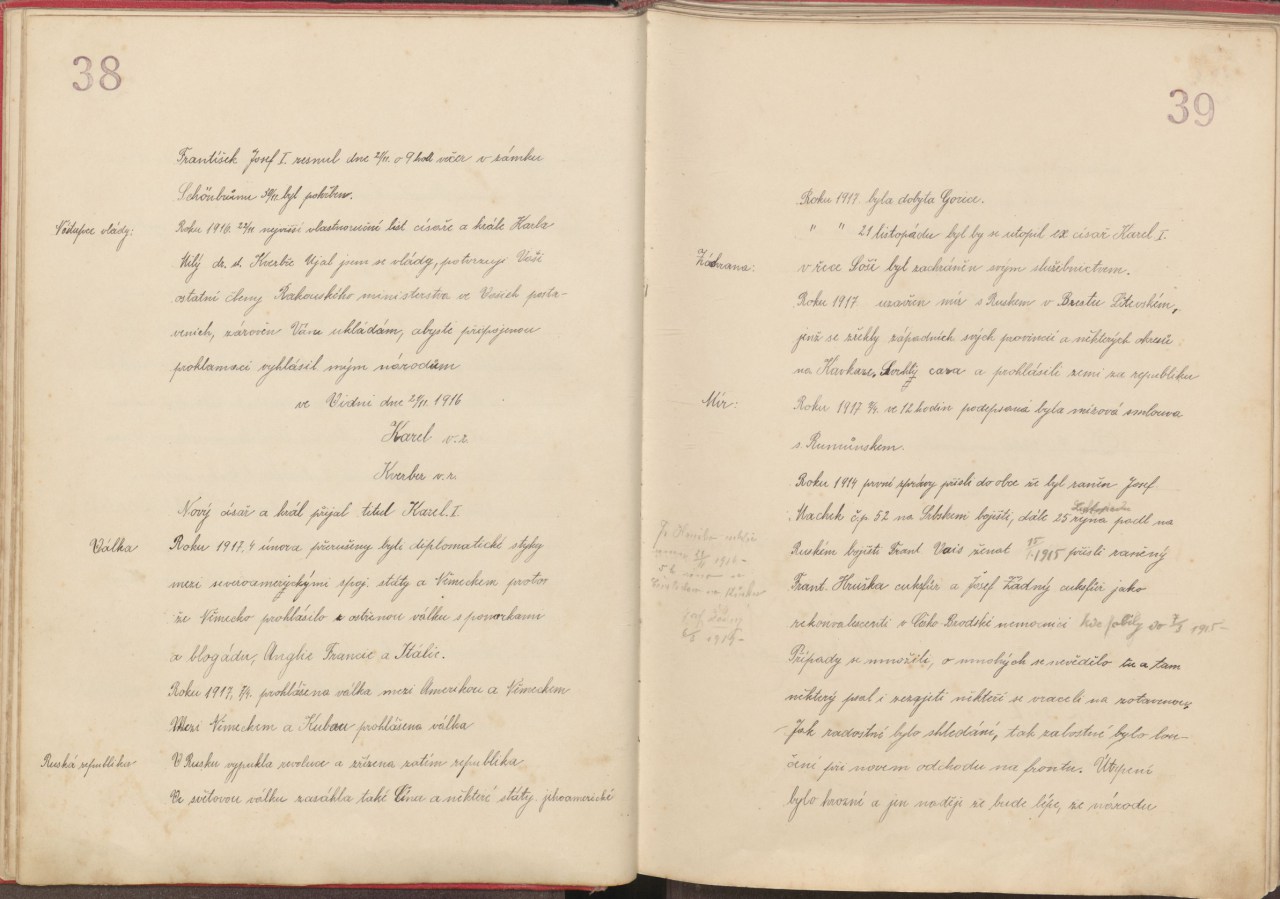 38
František Josef I. zesnul dne 21/11. o 9 hod večer v zámku
Schönbrunu 30/11 byl pohřben.
Nástupce vlády:
Roku 1916. 22/11 nejvyšší vlastnoruční list císaře a krále Karla
Milý dr. d. Kverbře Ujal jsem se vlády, potvrzuji Vaši
ostatní členy Rakouského ministerstva ve Vašich posta-
veních, zároveň Vám ukládám, abyste připojenou
proklamaci vyhlásil mým národům
ve Vídni dne 21/11. 1916
Karel v. r.
Kverber v. r.
Nový císař a král přijal titul Karel. I.
Válka
Roku 1917, 4 února přerušeny byli diplomatické styky
mezi severoamerickými spoj. státy a Německem proto
že Německo prohlásilo z ostřenou válku s ponorkami
a blogádu, Anglie Francie a Itálie.
Roku 1917, 7/4. prohlášena válka mezi Amerikou a Německem
Mezi Německem a Kubau prohlášena válka
Ruská republika
V Rusku vypukla revoluce a zřízena zatím republika
Ve světovou válku zasáhla také Čína a některé státy. jihoamerické
39
Roku 1917 byla dobyta Gorice.
" " 21 listopádu byl by se utopil ex císař Karel I.
Záchrana:
v řece Soši byl zachráněn svým služebnictvem.
Roku 1917 uzavřen mír s Ruskem v Brestu Litevském,
jenž se zřekly západních svých provincií a některých okresů
na Kavkaze. Svrhlý cara a prohlásili zemi za republiku
Mír:
Roku 1917 ve 12 hodin podepsaná byla mírová smlouva
s Rumunskem.
Roku 1914 první zprávy přišli do obce že byl raněn Josef
Machek č.p. 52 na Srbském bojišti, dále 25 října padl na
listopadu
Ruském bojišti Frant. Vais ženat 1915 přišli raněný
Frant. Hruška cuksfür a Josef Žádný cuksfür jako
rekonvalescenti v Česko Brodské nemocnici kde pobyly do 1915 –
Případy se množili, o mnohých se nevědělo tu a tam
některý psal i zezajetí někteří se vraceli na zotavenou,
Jak radostné bylo shledání, tak žalostné bylo lou-
čení při novém odchodu na frontu. Utrpení
bylo hrozné a jen naděje že bude lépe, že národu